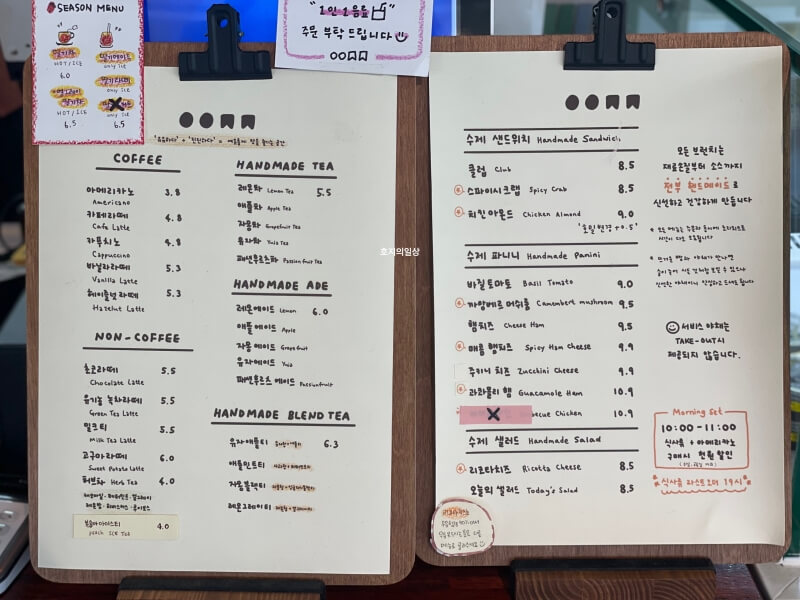 SEASON MENU
딸기차
HOT / ICE
6.0
딸기에이드
only ICE
딸기라떼
only ICE
HOT / ICE
6.5
only ICE
6.5
"1인 1음료"
주문 부탁 드립니다
COFFEE
아메리카노 3.8
Americano
카페라떼 4.8
Cafe Latte
카푸치노 4.8
Cappuccino
바닐라라떼 5.3
Vanilla Latte
헤이즐넛라떼 5.3
Hazelnut Latte
NON-COFFEE
초코라떼 5.5
Chocolate Latte
유기농 녹차라떼 5.5
Green Tea Latte
밀크티 5.5
Milk Tea Latte
고구마라떼 6.0
Sweet Potato Latte
허브차 Herb Tea 4.0
복숭아아이스티 4.0
peach ICE Tea
HANDMADE TEA
레몬차 Lemon Tea 5.5
애플차 Apple Tea
자몽차 Grapefruit Tea
유자차 Yuja Tea
패션후르츠차 Passionfruit Tea
HANDMADE ADE
레몬에이드 Lemon 6.0
애플에이드 Apple
자몽에이드 Grapefruit
유자에이드 Yuja
패션후르츠 에이드 Passionfruit
HANDMADE BLEND TEA
유자애플티 6.3
애플민트티
자몽블랙티
레몬그레이티
호지의일상
수제 샌드위치 Handmade Sandwich
클럽 Club 8.5
스파이시크랩 Spicy Crab 8.5
치킨아몬드 Chicken Almond 9.0
호밀변경 +0.5
수제 파니니 Handmade Panini
바질토마토 Basil Tomato 9.0
까망베르 머쉬룸 Camembert mushroom 9.5
햄치즈 Cheese Ham 9.5
매콤 햄치즈 Spicy Ham Cheese 9.9
쥬키니 치즈 Zucchini Cheese 9.9
과카몰리 햄 Guacamole Ham 10.9
Chicken 10.9
수제 샐러드 Handmade Salad
리코타치즈 Ricotta Cheese 8.5
오늘의 샐러드 Today's Salad 8.5
모든 브런치는
재료손질부터 소스까지
전부 핸드메이드로
신선하고 건강하게 만듭니다
서비스 야채는
TAKE-OUT시
제공되지 않습니다.
Morning Set
10:00 - 11:00
식사류 + 아메리카노
구매시 천원 할인
식사류 라스트오더 19시